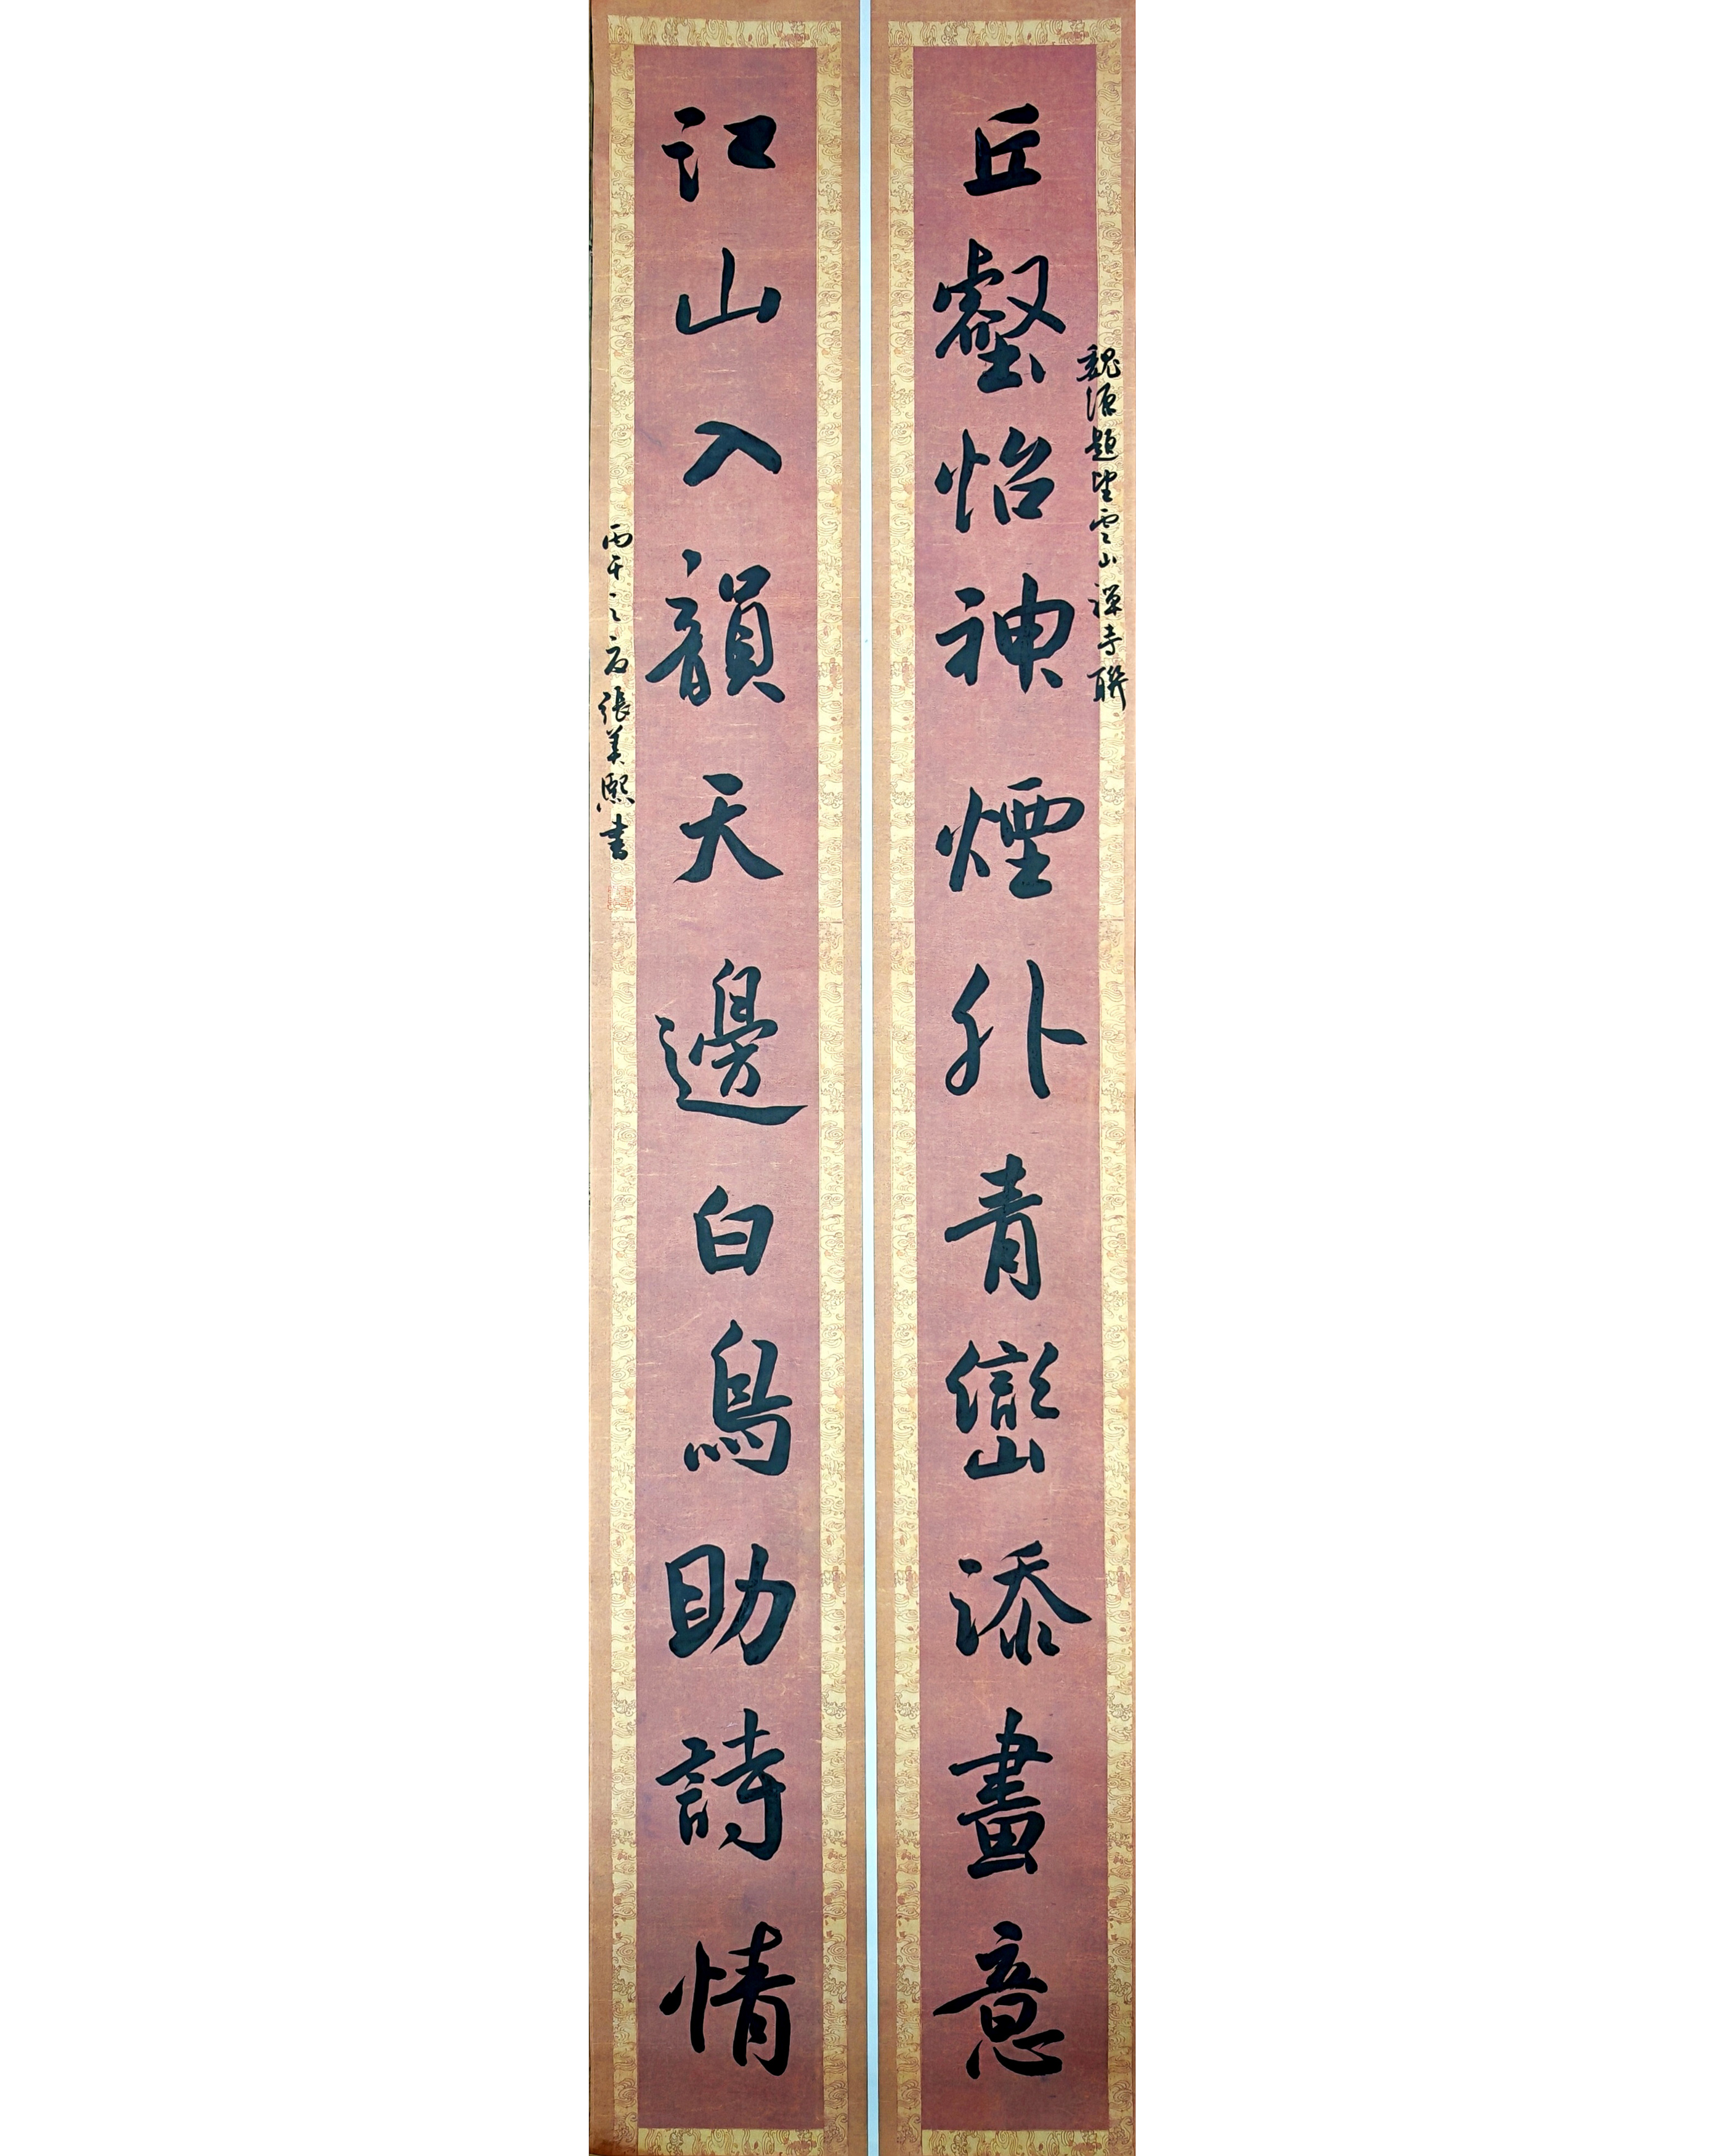 魏源題望雲山禪寺聯
丘壑怡神煙外青巒添畫意
江山入韻天邊白鳥助詩情
丙午之夏張美熙書